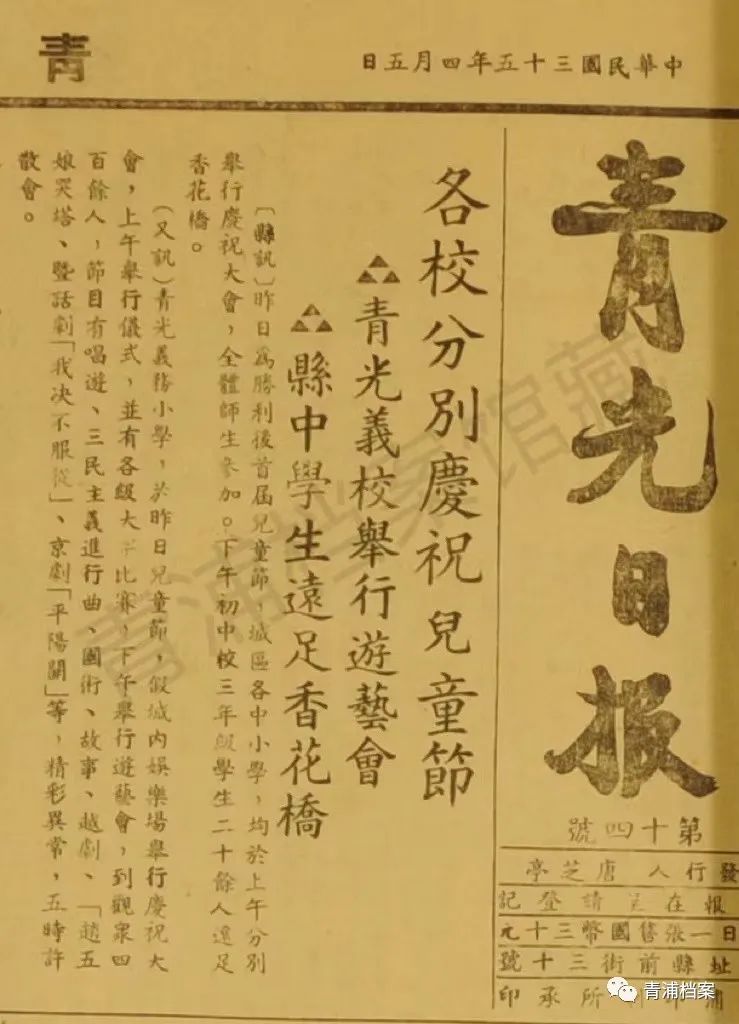 中華民國三十五年四月五日
青
青光日报
第十四號
發行人 唐芝亭
報在呈請登記
日一張售國幣三十元
址縣前街三十號
印所承印
各校分別慶祝兒童節
青光義校舉行遊藝會
縣中學生遠足香花橋
〔縣訊〕昨日爲勝利後首屆兒童節，城區各中小學，均於上午分別
舉行慶祝大會，全體師生參加。下午初中校三年級學生二十餘人遠足
香花橋。
（又訊）青光義務小學，於昨日兒童節，假城內娛樂場舉行慶祝大
會，上午舉行儀式，並有各級大比賽，下午舉行遊藝會，到觀衆四
百餘人，節目有唱遊、三民主義進行曲、國術、故事、越劇、「趙五
娘哭塔、暨話劇「我决不服從」、京劇「平陽關」等，精彩異常，五時許
散會。
青浦档案馆藏
青浦档案